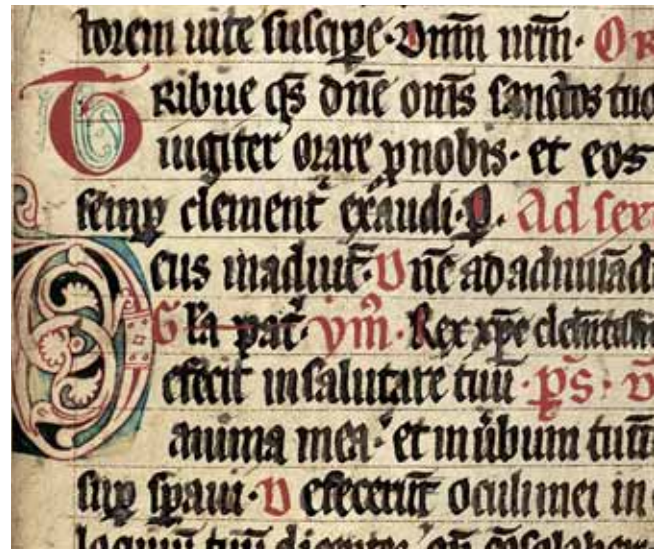 torem uite suscipe · Dnm̄ nr̄m · Or
Tribue qs̄ dn̄e om̄s sanctos tuo
iugiter orare ꝓnobis · et eos
semꝑ clement᷑ exaudi · P̄ · Ad sext
Deus inadiut᷑ · Dn̄e ad adiuuād
Gl̄a pat᷑ · ym̄ · Rex xp̄e clem̄tissi
efecit insalutare tuū · p̄s ·
anima mea · et in ūbum tuū
suꝑ sꝑaui · Defecerūt oculi mei in
loquiū tuū dicentes